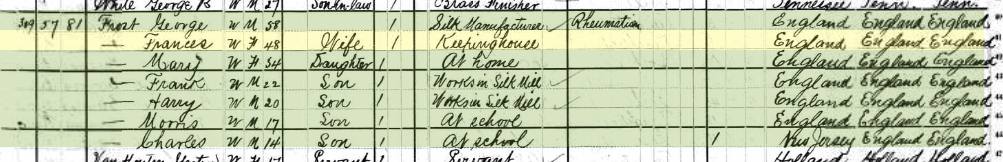 White George R W M 27 Son-in-law 1 Brass Finisher Tennessee Tenn. Tenn.
309 57 81 Frost George W M 58 1 Silk Manufacturer Rheumatism England England England
— Frances W F 48 Wife 1 Keeping house England England England
— Mary W F 34 Daughter 1 At home England England England
— Frank W M 22 Son 1 Works in Silk Mill England England England
— Harry W M 20 Son 1 Works in Silk Mill England England England
— Morris W M 17 Son 1 At school England England England
— Charles W M 14 Son 1 At school 1 New Jersey England England
Van Houten W F 17 Servant 1 Servant Holland Holland Holland